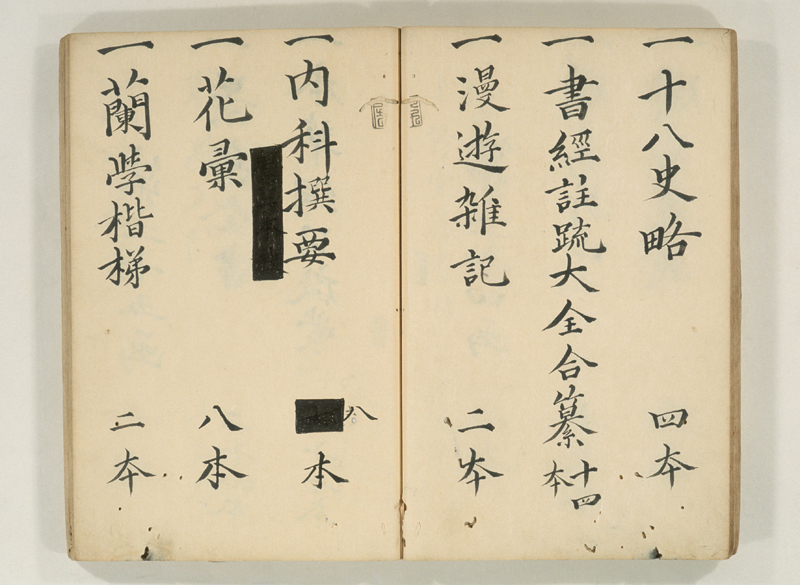 一 十八史略 四本
一 書經註疏大全合纂 十四本
一 漫遊雑記 二本
一 内科撰要 八本
一 花彙 八本
一 蘭学楷梯 二本